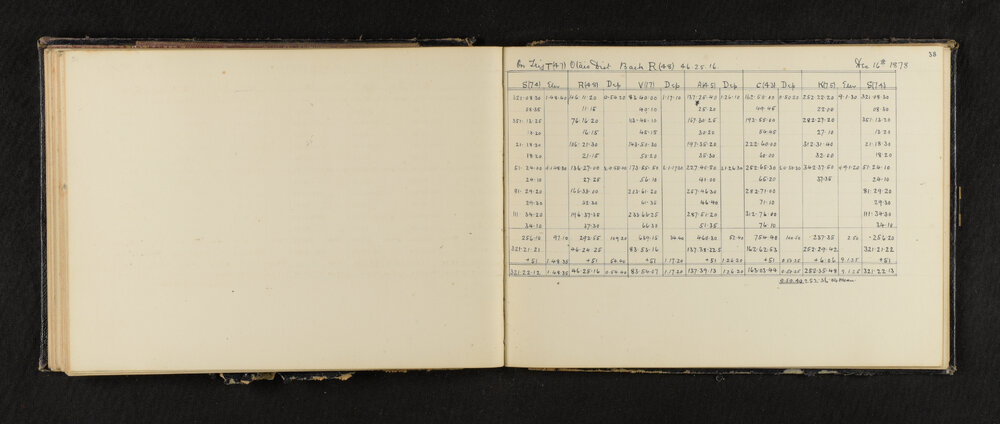 38
On Trig T (47) Otaio Dist Back R (48) 46.25.16 Dec 16th 1878
S(74) Elev R(48) Dep V(17) Dep A(45) Dep C(43) Dep K(75) Elev S(74)
321.08.30 1.48.40 46.11.20 0.54.20 83.40.00 1.17.10 137.25.40 1.26.10 162.50.00 0.50.20 252.22.20 9.1.30 321.08.30
08.35 11.15 40.10 25.20 49.45 22.00 08.30
351.13.25 76.16.20 113.45.10 167.30.25 192.55.00 282.27.20 351.13.20
13.20 16.15 45.15 30.20 54.45 27.10 13.20
21.18.30 106.21.30 143.50.30 197.35.20 222.60.00 312.31.40 21.18.30
18.20 21.15 50.20 35.30 60.00 32.00 18.20
51.24.00 136.27.00 173.55.50 227.40.50 252.65.30 342.37.50 51.24.10
24.10 27.25 56.10 41.00 65.20 37.35 24.10
81.29.20 166.33.00 257.46.30 282.71.00 81.29.20
29.30 32.30 61.35 46.40 71.10 29.30
111.34.20 196.37.35 233.66.25 287.51.20 312.76.00 111.34.30
34.10 37.30 66.30 51.35 76.10 34.10
256.10 97.10 292.55 109.20 639.15 34.40 460.30 52.40 754.48 -237.35 2.50 -256.20
321.21.21 46.24.25 83.53.16 137.38.22.5 162.62.53 252.29.42 321.21.22
+51 1.48.35 +51 54.40 +51 1.17.20 +51 1.26.20 +51 0.50.25 +6.06 9.1.25 +51
321.22.12 1.48.35 46.25.16 0.54.40 83.54.07 1.17.20 137.39.13 1.26.20 163.03.44 0.50.25 252.35.48 9.1.25 321.22.13
0.50.40